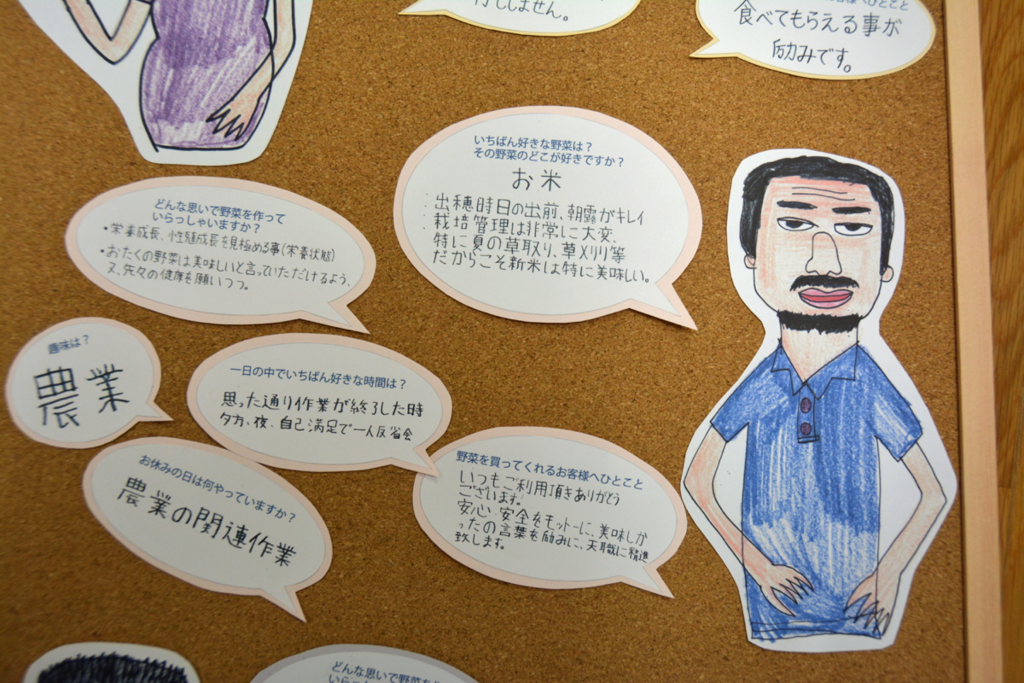 けしません。
食べてもらえる事が
励みです。
いちばん好きな野菜は？
その野菜のどこが好きですか？
お米
出穂時日の出前、朝露がキレイ
栽培管理は非常に大変、
特に夏の草取り、草メリリ等
だからこそ新米は特に美味しい。
どんな思いで野菜を作って
いらっしゃいますか？
・栄養成長、性殖成長を見極める事(栄養状態)
・おたくの野菜は美味しいと言っていただけるよう、
又、先々の健康を願いつつ。
趣味は？
農業
一日の中でいちばん好きな時間は？
思った通り作業が終了した時
夕方、夜、自己満足で一人反省会
お休みの日は何やっていますか？
農業の関連作業
野菜を買ってくれるお客様へひとこと
いつもご利用頂きありがとう
ございます。
安心、安全をモットーに、美味しか
ったの言葉を励みに、天職に精進
致します。
どんな思いで野菜を